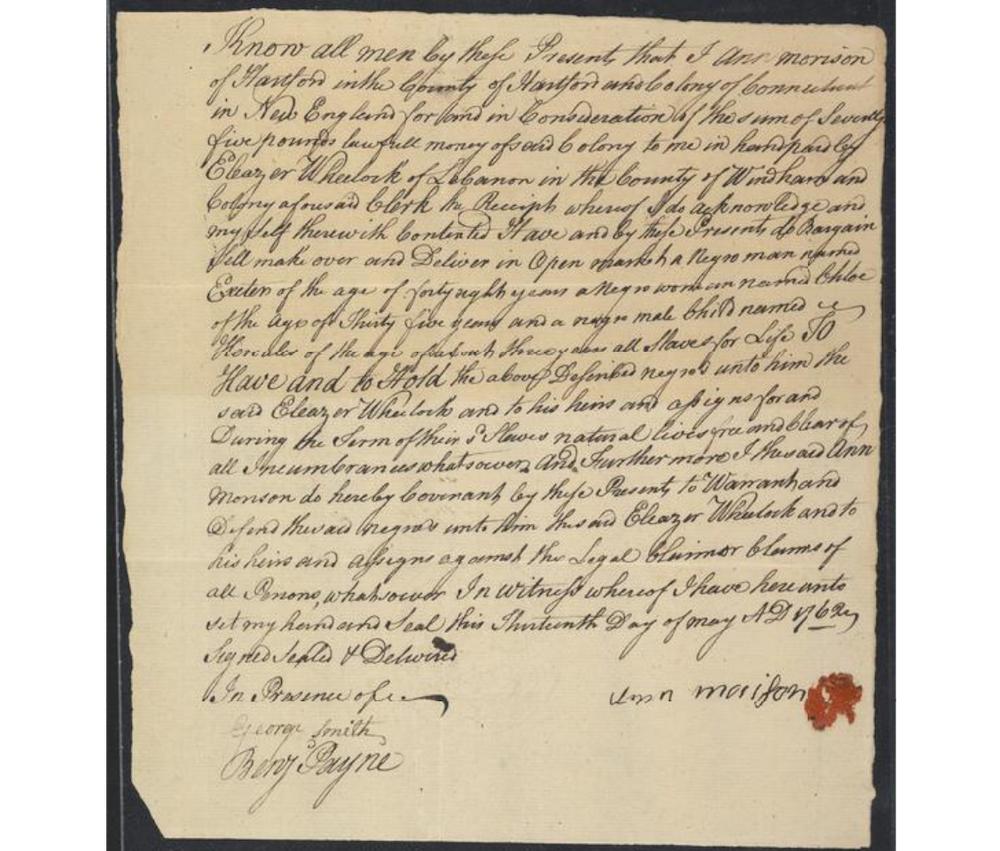 Know all men by these Presents that I Ann morison
of Hartford in the County of Hartford and Colony of Connecticut
in New England for and in Consideration of the sum of Seventy
five pounds lawfull money of said Colony to me in hand paid by
Eleazer Wheelock of Lebanon in the County of Windham and
Colony aforesaid Clerk the Receipt whereof I do acknowledge and
my self therewith Contented Have and by these Presents do Bargain
Sell make over and Deliver in Open market a Negro man named
Exeter of the age of forty eight years a Negro woman named Chloe
of the Age of Thirty five years and a negro male Child named
Hercules of the age of about three years all Slaves for Life To
Have and to Hold the above Described negros unto him the
said Eleazer Wheelock and to his heirs and assigns for and
During the Term of their sd Slaves natural lives free and Clear of
all Incumbrances whatsoever And Further more I the said Ann
morison do hereby Covenant by these Presents to Warrant and
Defend the said negros unto him the said Eleazer Wheelock and to
his heirs and assigns against the Legal Claim or Claims of
all Persons whatsoever In witness whereof I have here unto
set my hand and Seal this Thirteenth Day of may AD 1762
Signed Sealed & Delivered
In Presence of
Ann morison
George Smith
Benj Payne